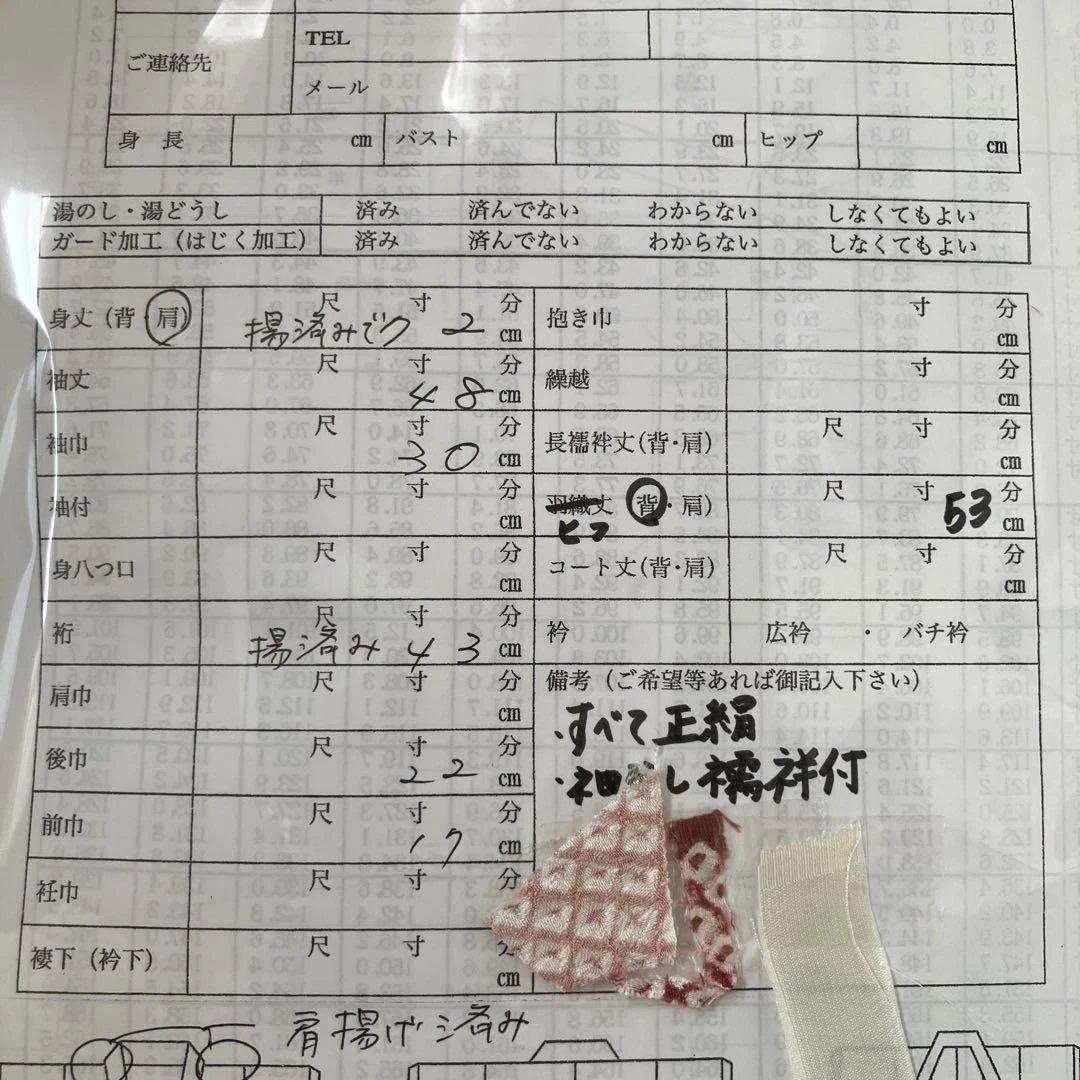 ご連絡先
TEL
メール
身 長 cm バスト cm ヒップ cm
湯のし・湯どうし 済み 済んでない わからない しなくてもよい
ガード加工(はじく加工) 済み 済んでない わからない しなくてもよい
身丈(背・肩) 尺 寸 分 揚済みで72 cm
袖丈 尺 寸 分 48 cm
袖巾 尺 寸 分 30 cm
袖付 尺 寸 分 cm
身八つ口 尺 寸 分 cm
裄 尺 寸 分 揚済み 43 cm
肩巾 尺 寸 分 cm
後巾 尺 寸 分 22 cm
前巾 尺 寸 分 17 cm
衽巾 尺 寸 分
褄下(衿下) 尺 寸 cm
抱き巾 寸 分 cm
繰越 寸 分 cm
長襦袢丈(背・肩) 尺 寸 分 cm
羽織丈 背・肩) 尺 寸 分 53 cm
ヒフ
コート丈(背・肩) 尺 寸 分 cm
衿 広衿 ・ バチ衿
備考(ご希望等あれば御記入下さい)
・すべて正絹
・袖 し襦袢付
肩揚げ済み